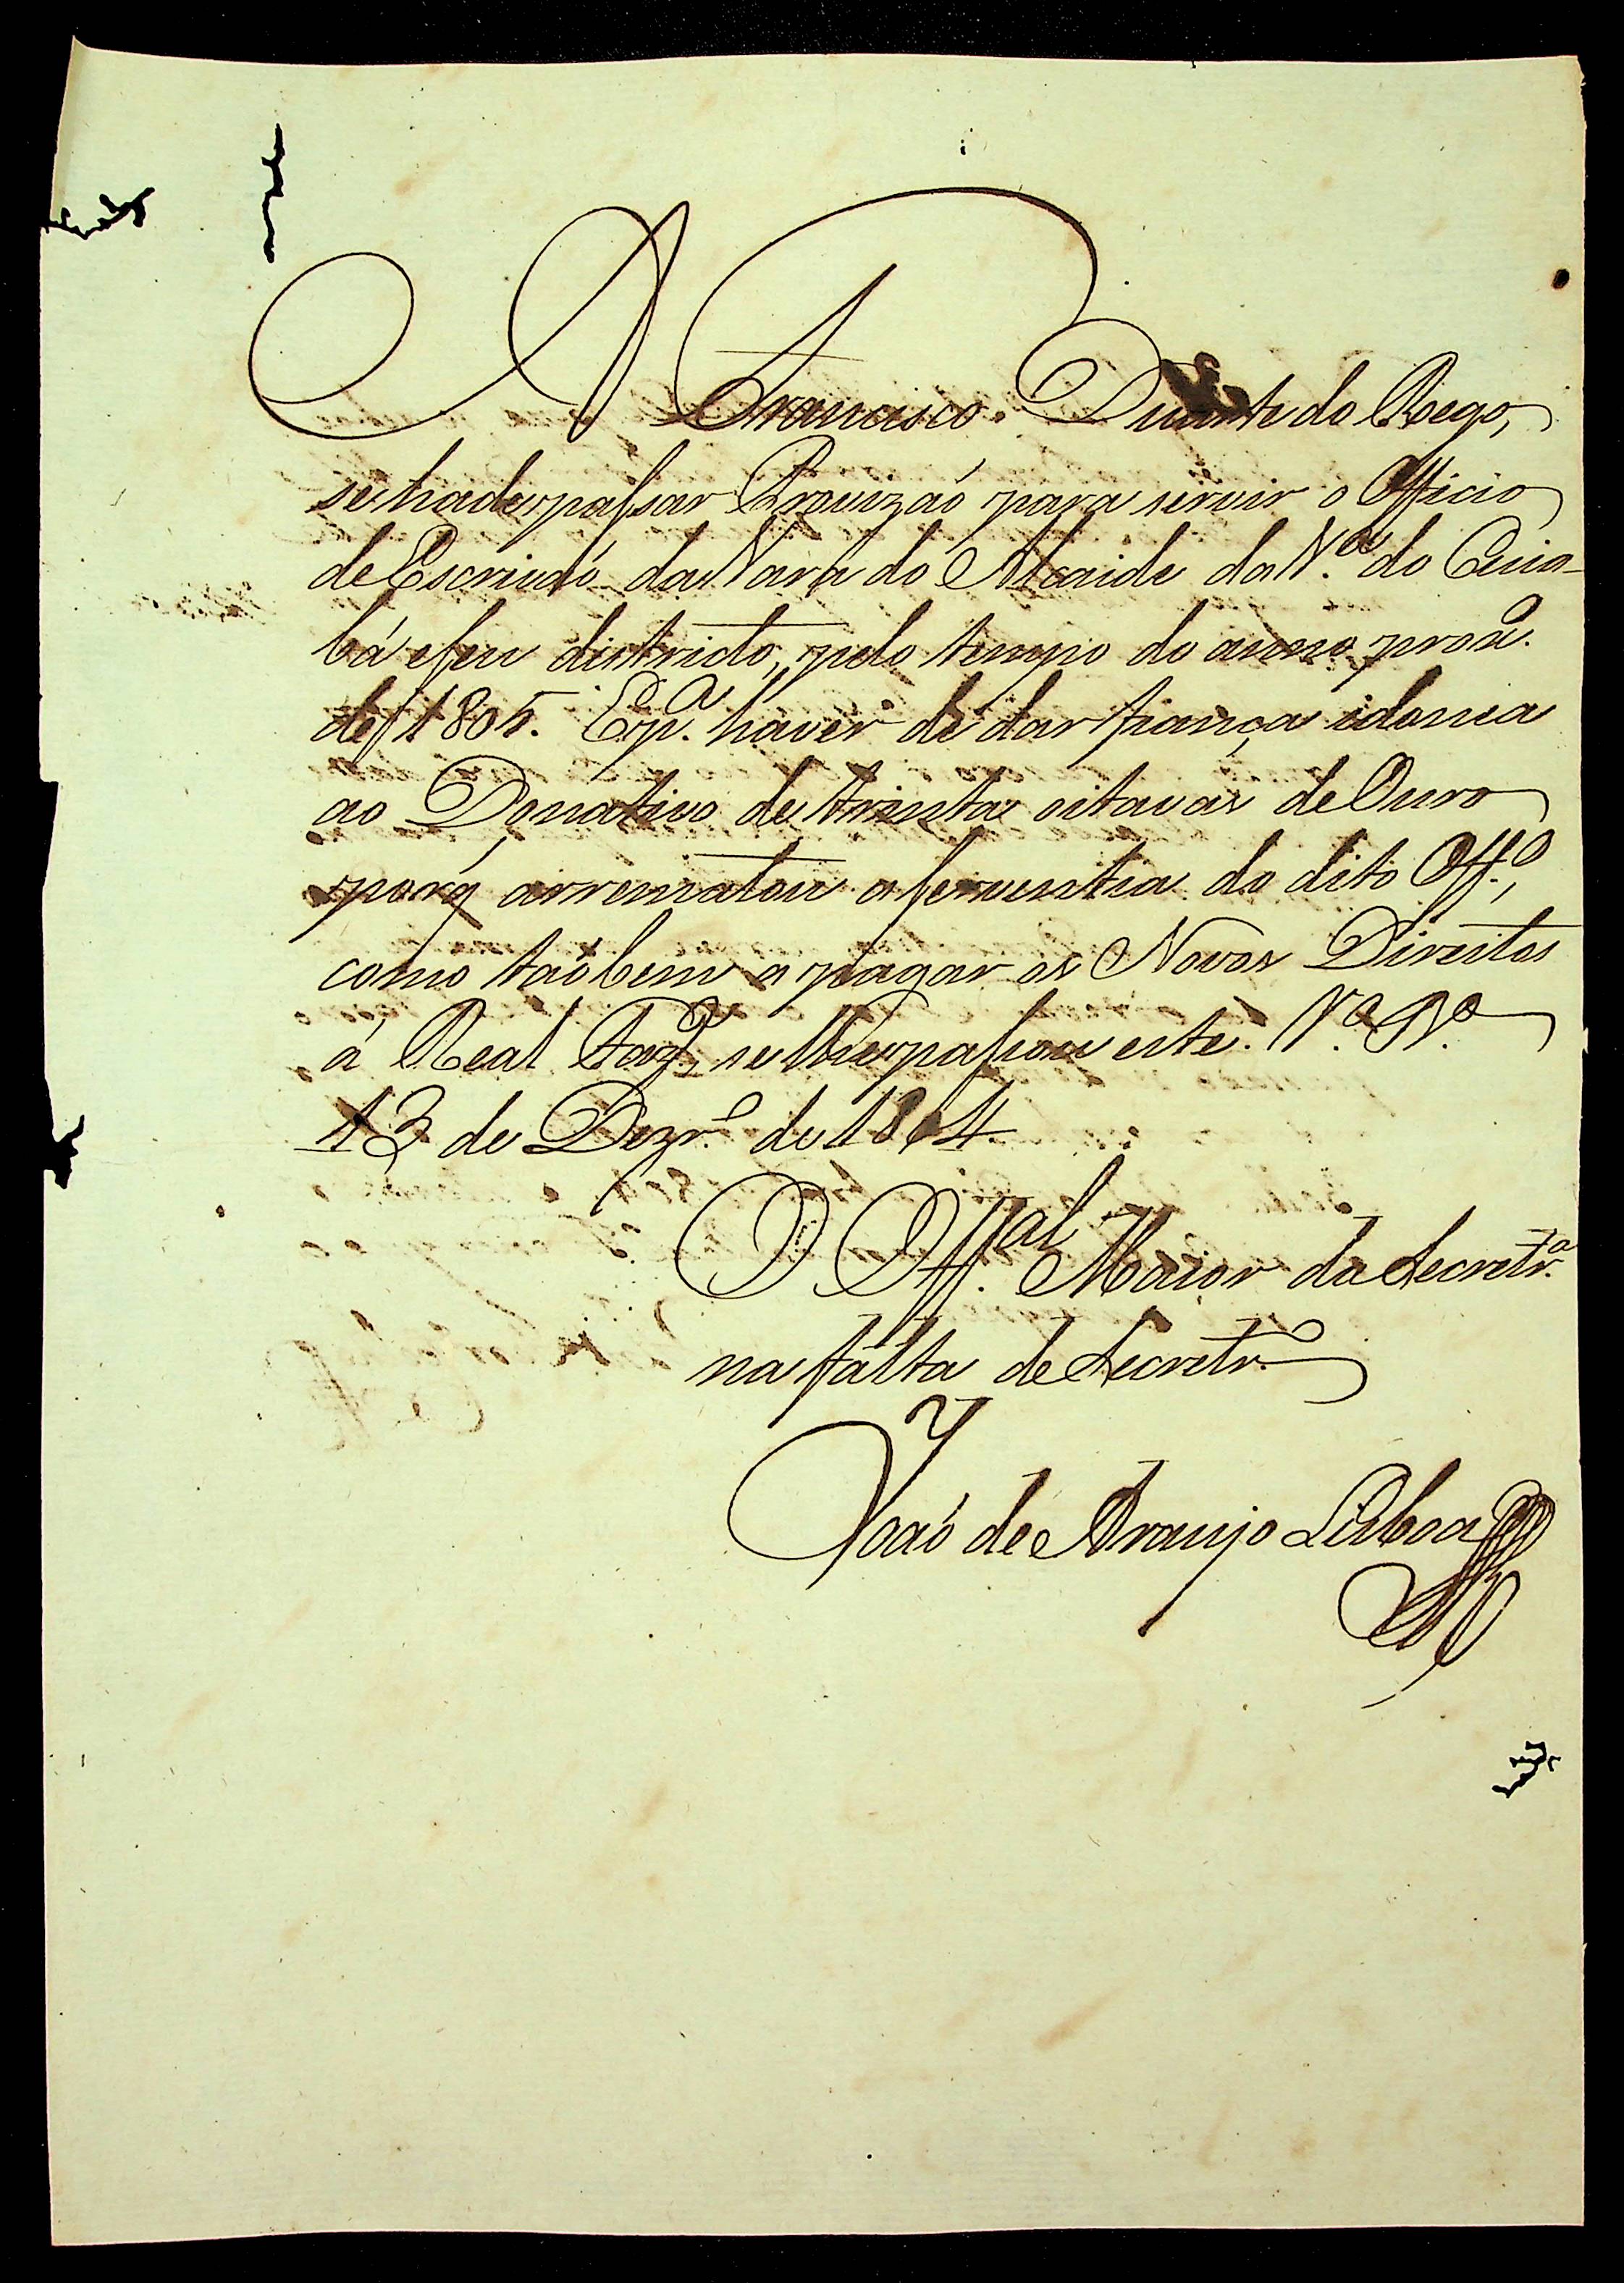 A Francisco Duarte do Rego,
se hade passar Provizaó para servir o Officio
de Escrivaó da Vara do Alcaide da V.ª do Cuia-
bá e seu districto, pelo tempo do anno proxº.
de 1805. E pª. haver de dar fiança idonea
ao Donativo de trinta oitavas de Ouro
porq̃ arrematou a serventia do dito Off.º,
como taõbem a pagar os Novos Direitos
á Real Fazª, se lhe passou este. Vª Bª
13 de Dezr.º de 1804
O Off.al Maior da Secretr.ª
na falta de Secretr.º
Joaó de Araujo Lisboa